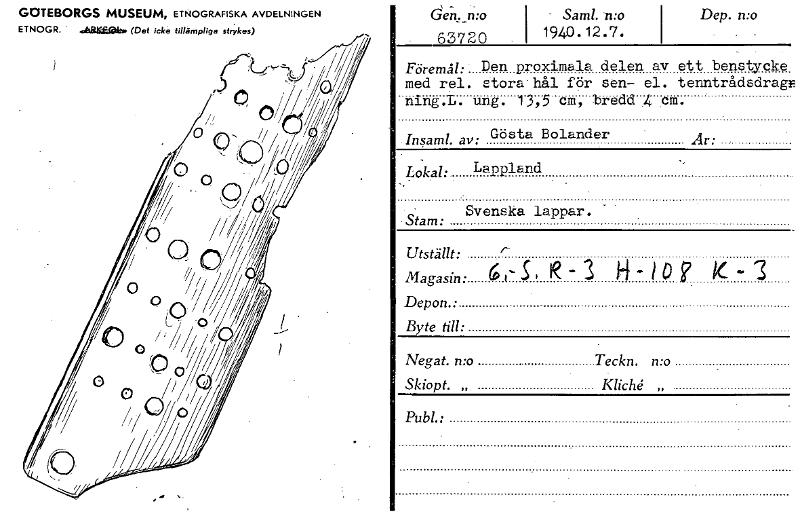 GÖTEBORGS MUSEUM, ETNOGRAFISKA AVDELNINGEN
ETNOGR. ARKEOL. (Det icke tillämplige strykes)
Gen. n:o
63720
Saml. n:o
1940.12.7.
Dep. n:o
Föremål: Den proximala delen av ett benstycke
med rel. stora hål för sen- el. tenntrådsdrag=
ning.L. ung. 13,5 cm, bredd 4 cm.
Insaml. av: Gösta Bolander År:
Lokal: Lappland
Stam: Svenska lappar.
Utställt:
Magasin: 6.-S. R-3 H-108 K-3
Depon.:
Byte till:
Negat. n:o Teckn. n:o
Skiopt. „ Kliché „
Publ.:
1/1